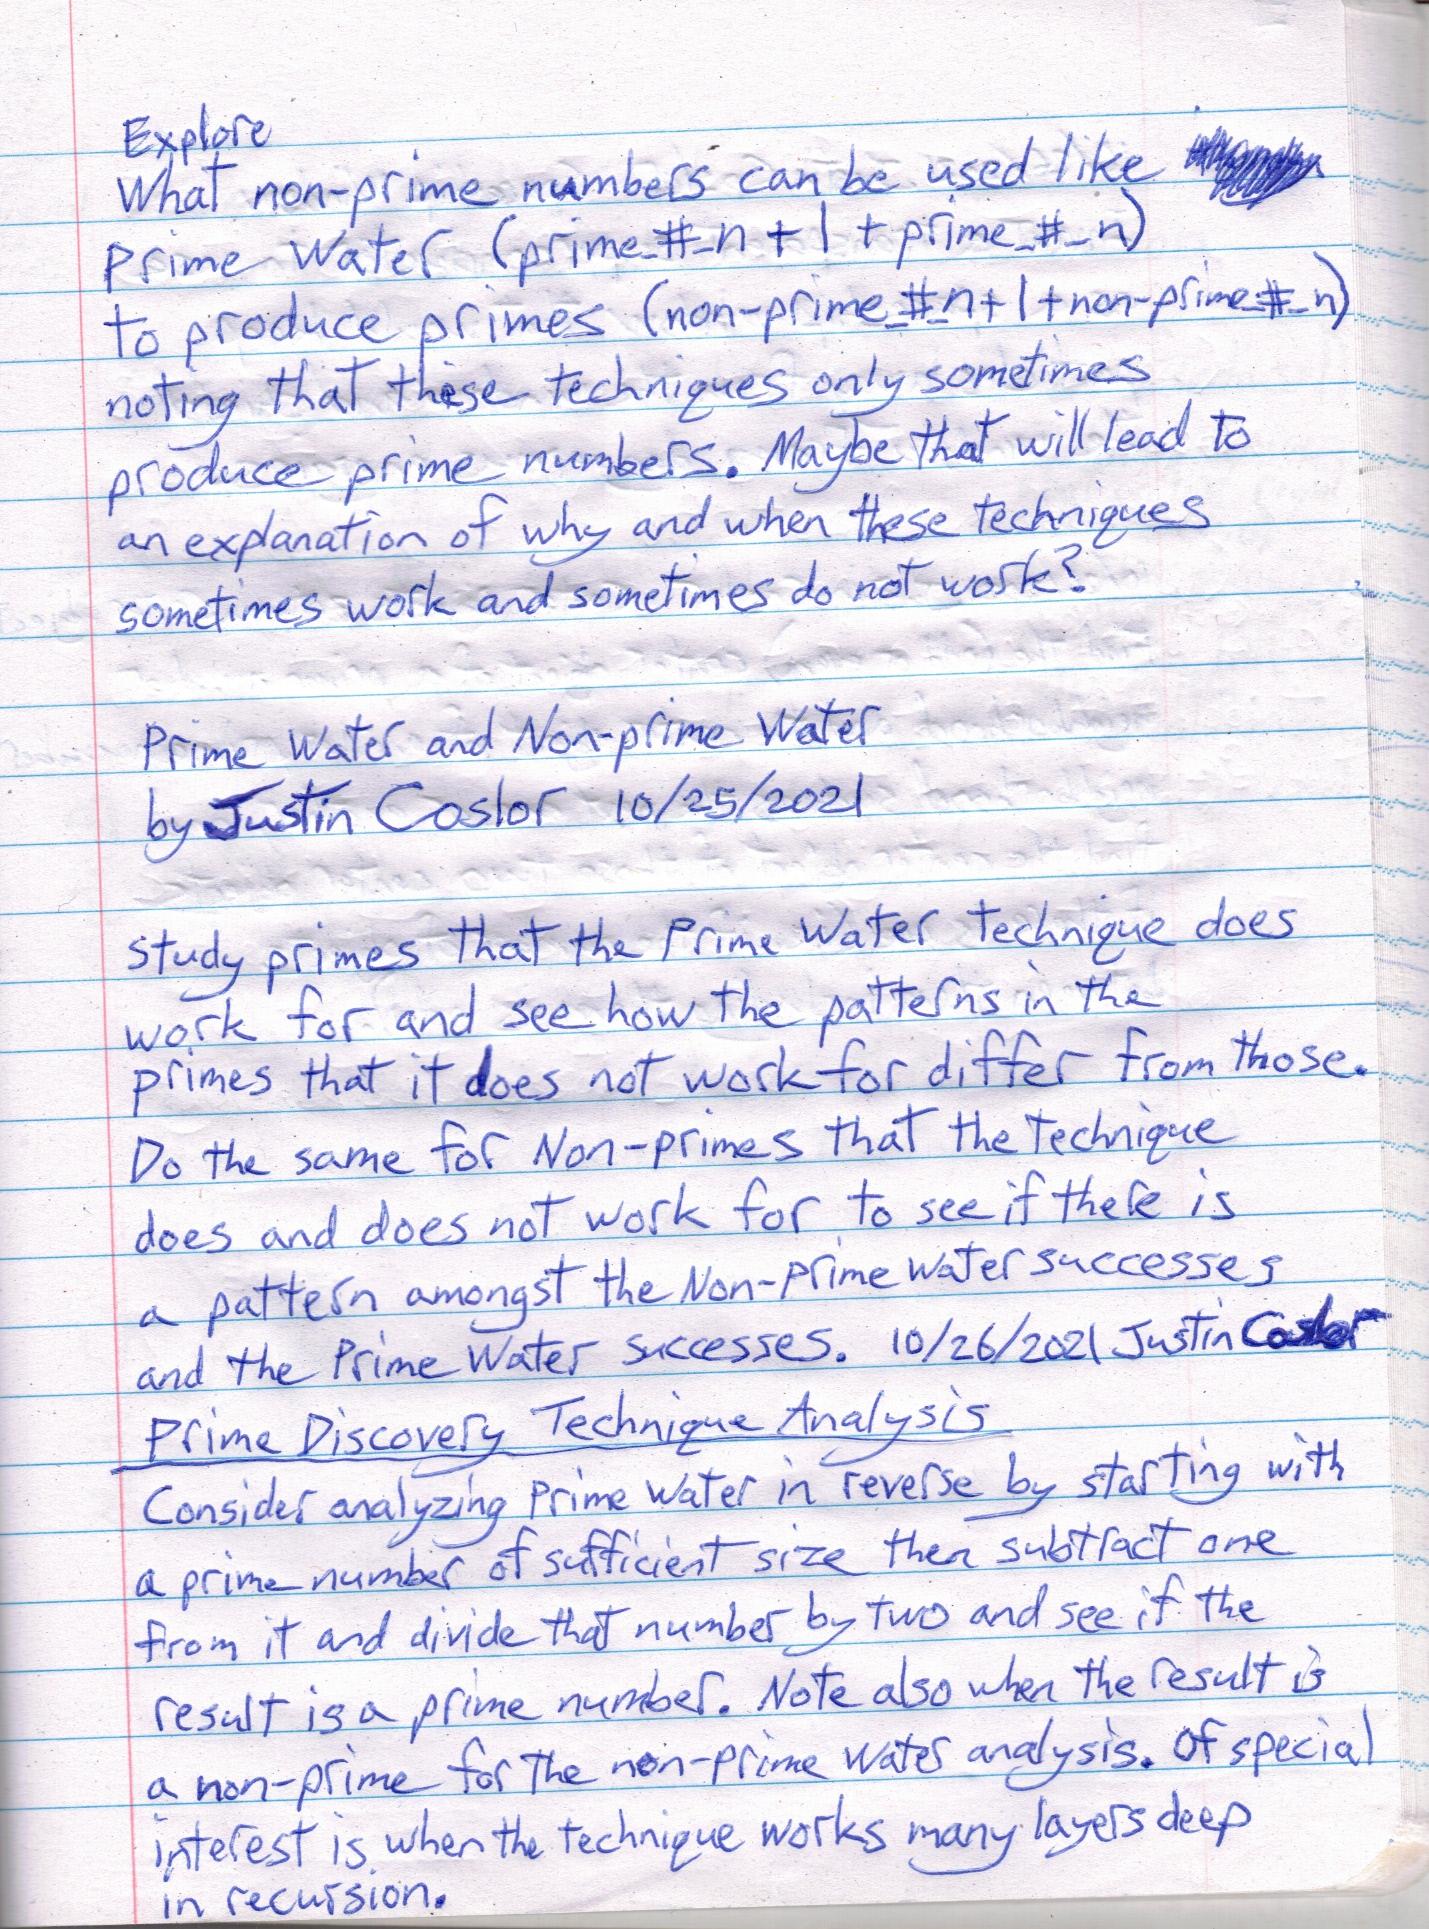 Explore
What non-prime numbers can be used like
Prime Water (prime_#_n + 1 + prime_#_n)
to produce primes (non-prime_#_n+1+non-prime_#_n)
noting that these techniques only sometimes
produce prime numbers. Maybe that will lead to
an explanation of why and when these techniques
sometimes work and sometimes do not work?
Prime Water and Non-prime Water
by Justin Coslor 10/25/2021
Study primes that the Prime Water technique does
work for and see how the patterns in the
primes that it does not work for differ from those.
Do the same for Non-primes that the technique
does and does not work for to see if there is
a pattern amongst the Non-Prime Water successes
and the Prime Water successes. 10/26/2021 Justin Coslor
Prime Discovery Technique Analysis
Consider analyzing Prime Water in reverse by starting with
a prime number of sufficient size then subtract one
from it and divide that number by two and see if the
result is a prime number. Note also when the result is
a non-prime for the non-prime water analysis. Of special
interest is when the technique works many layers deep
in recursion.